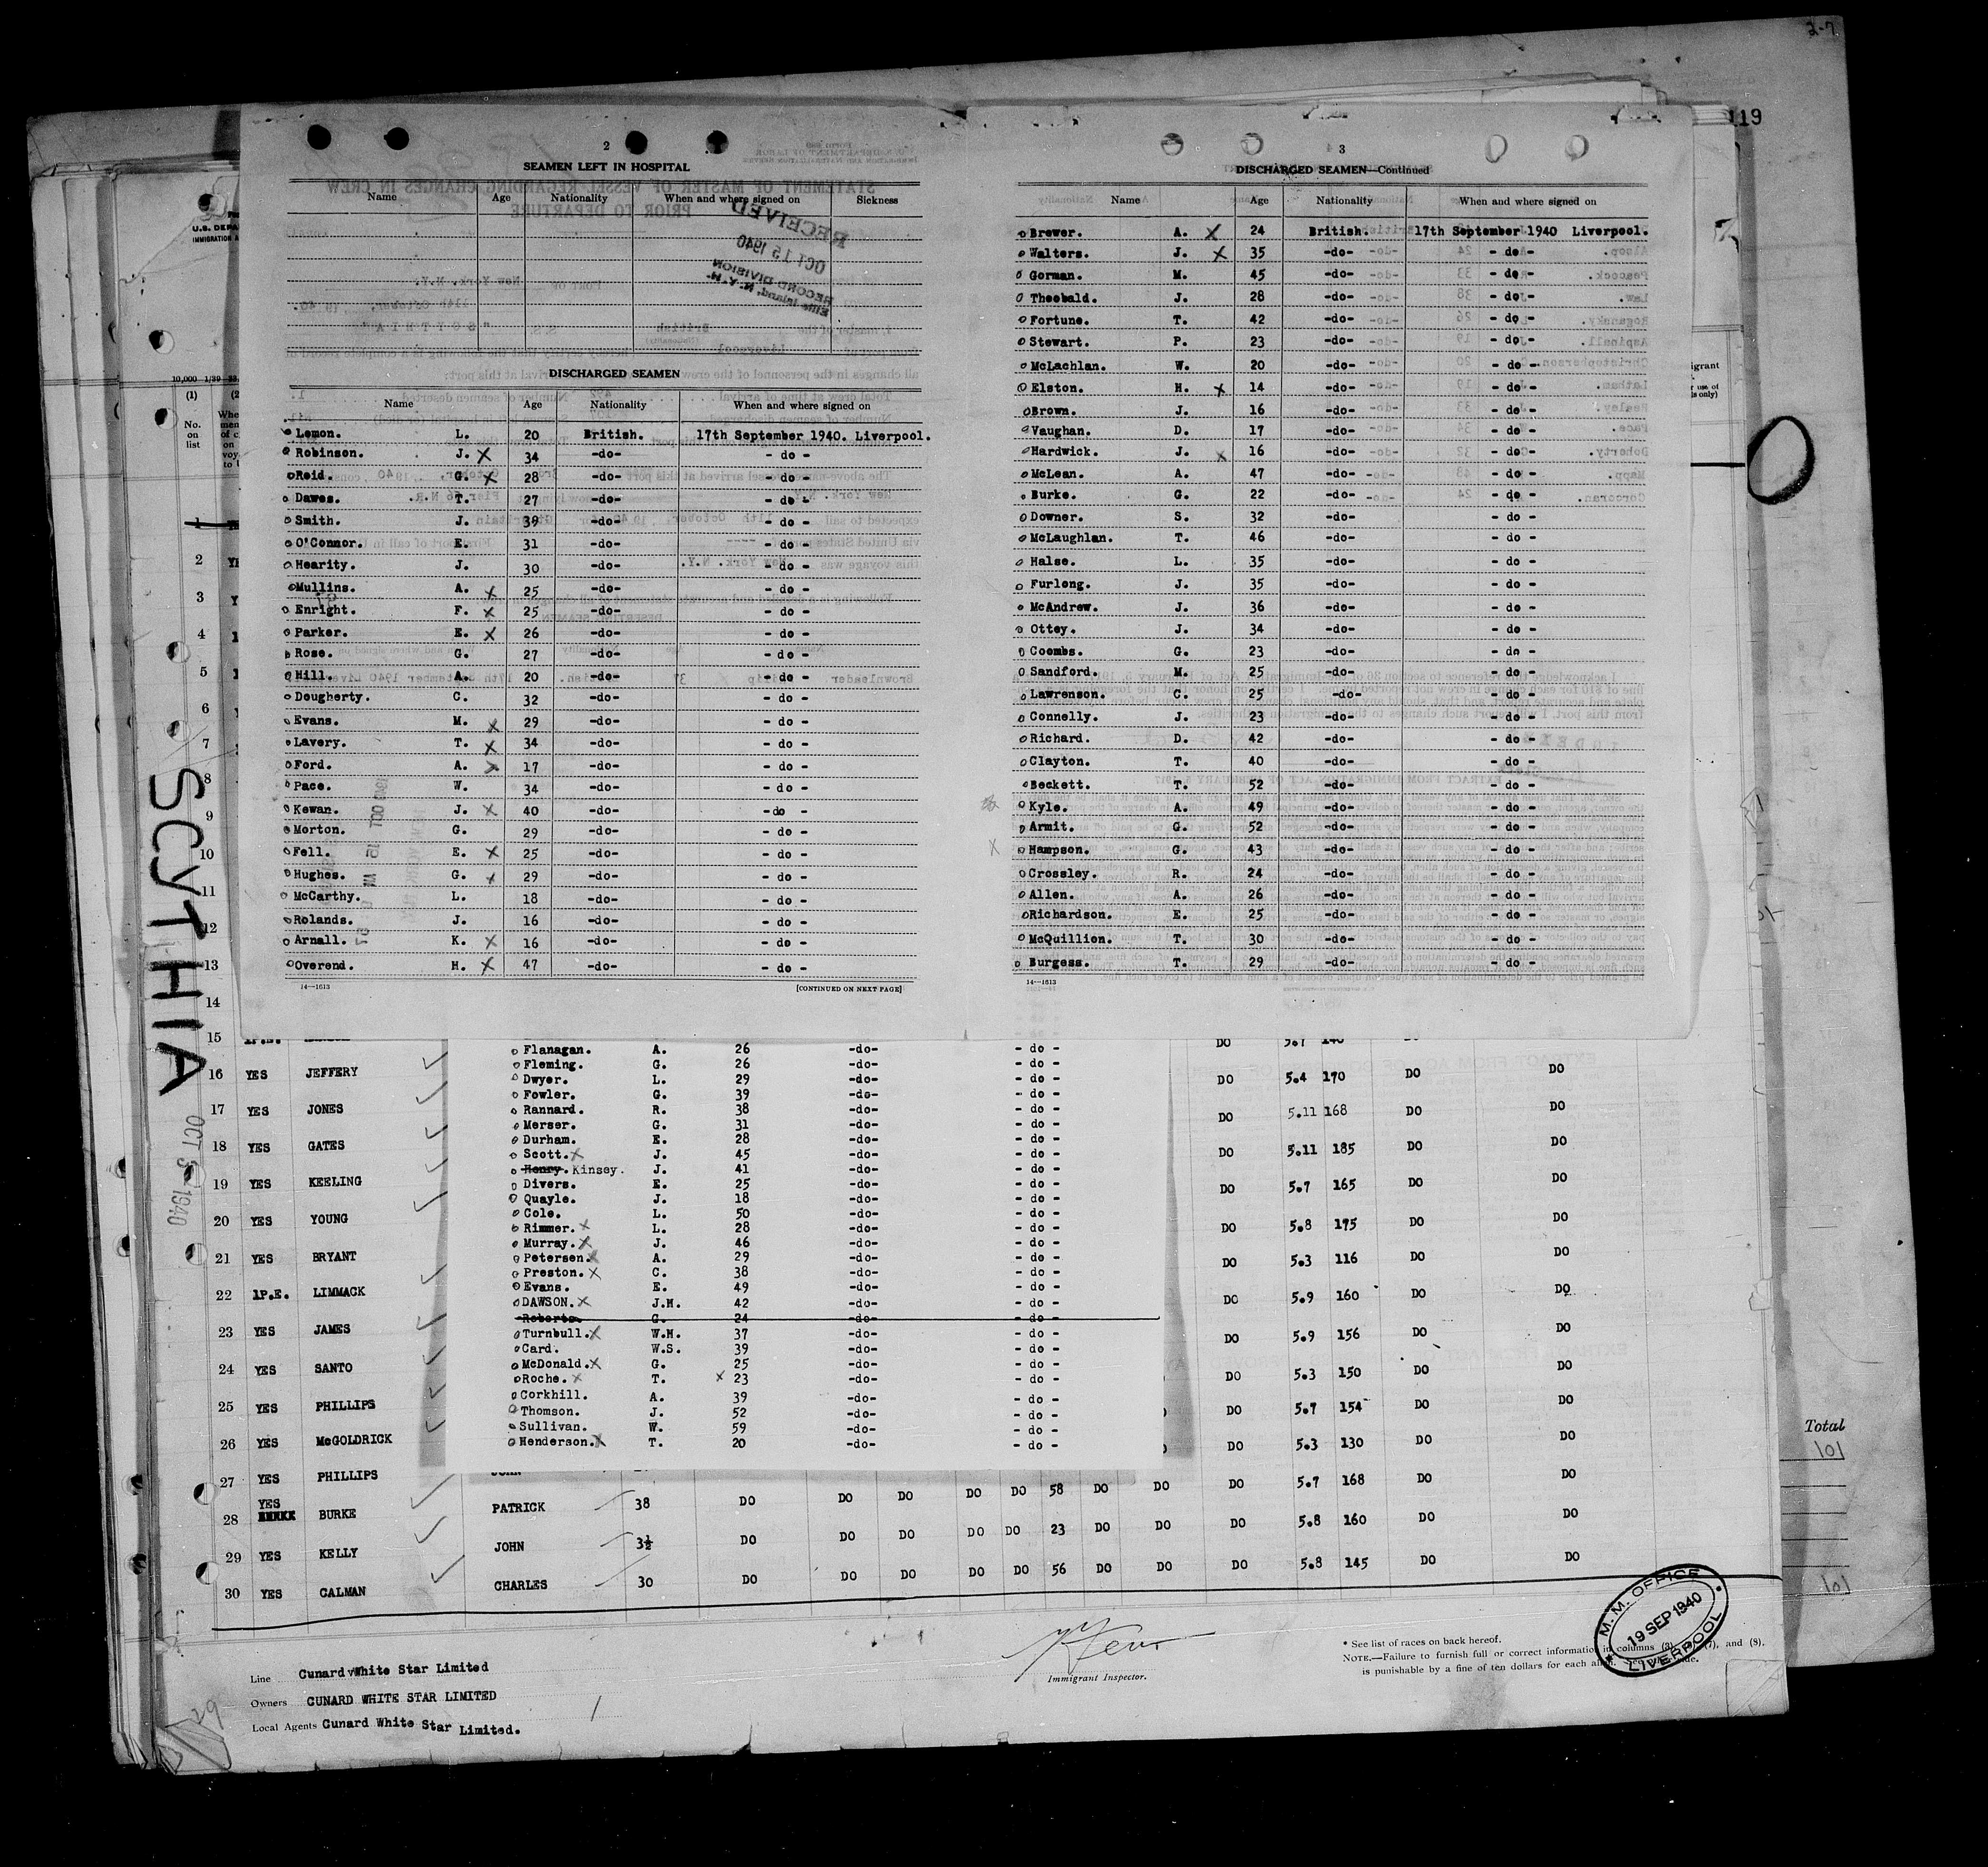 2-7
119
2
SEAMEN LEFT IN HOSPITAL
Name Age Nationality When and where signed on Sickness
RECEIVED
OCT 15 1940
RECORD DIVISION
Ellis Island, N.Y.H.
DISCHARGED SEAMEN
Name Age Nationality When and where signed on
Lemon. L. 20 British. 17th September 1940. Liverpool.
Robinson. J. X 34 -do- - do -
Reid. G. X 28 -do- - do -
Dawes. T. 27 -do- - do -
Smith. J. 39 -do- - do -
O'Connor. E. 31 -do- - do -
Hearity. J. 30 -do- - do -
Mullins. A. X 25 -do- - do -
Enright. F. X 25 -do- - do -
Parker. E. X 26 -do- - do -
Rose. G. 27 -do- - do -
Hill. A. 20 -do- - do -
Dougherty. C. 32 -do- - do -
Evans. M. X 29 -do- - do -
Lavery. T. X 34 -do- - do -
Ford. A. X 17 -do- - do -
Pace. W. 34 -do- - do -
Kewan. J. X 40 -do- - do -
Morton. G. 29 -do- - do -
Fell. E. X 25 -do- - do -
Hughes. G. X 29 -do- - do -
McCarthy. L. 18 -do- - do -
Rolands. J. 16 -do- - do -
Arnall. K. X 16 -do- - do -
Overend. H. X 47 -do- - do -
14—1613 [CONTINUED ON NEXT PAGE]
3
DISCHARGED SEAMEN—Continued
Name Age Nationality When and where signed on
Brewer. A. X 24 British. 17th September 1940 Liverpool.
Walters. J. X 35 -do- - do -
Gorman. M. 45 -do- - do -
Theobald. J. 28 -do- - do -
Fortune. T. 42 -do- - do -
Stewart. P. 23 -do- - do -
McLachlan. W. 20 -do- - do -
Elston. H. X 14 -do- - do -
Brown. J. 16 -do- - do -
Vaughan. D. 17 -do- - do -
Hardwick. J. X 16 -do- - do -
McLean. A. 47 -do- - do -
Burke. G. 22 -do- - do -
Downer. S. 32 -do- - do -
McLaughlan. T. 46 -do- - do -
Halse. L. 35 -do- - do -
Furlong. J. 35 -do- - do -
McAndrew. J. 36 -do- - do -
Ottey. J. 34 -do- - do -
Coombs. G. 23 -do- - do -
Sandford. M. 25 -do- - do -
Lawrenson. C. 25 -do- - do -
Connelly. J. 23 -do- - do -
Richard. D. 42 -do- - do -
Clayton. T. 40 -do- - do -
Beckett. T. 52 -do- - do -
Kyle. A. 49 -do- - do -
Armit. G. 52 -do- - do -
X Hampson. G. 43 -do- - do -
Crossley. R. 24 -do- - do -
Allen. A. 26 -do- - do -
Richardson. E. 25 -do- - do -
McQuillion. T. 30 -do- - do -
Burgess. T. 29 -do- - do -
14—1613
Flanagan. A. 26 -do- - do -
Fleming. G. 26 -do- - do -
Dwyer. L. 29 -do- - do -
Fowler. G. 39 -do- - do -
Rannard. R. 38 -do- - do -
Merser. G. 31 -do- - do -
Durham. E. 28 -do- - do -
Scott. X J. 45 -do- - do -
Henry. Kinsey. J. 41 -do- - do -
Divers. E. 25 -do- - do -
Quayle. J. 18 -do- - do -
Cole. L. 50 -do- - do -
Rimmer. X L. 28 -do- - do -
Murray. X J. 46 -do- - do -
Petersen. X A. 29 -do- - do -
Preston. X C. 38 -do- - do -
Evans. E. 49 -do- - do -
DAWSON. X J.H. 42 -do- - do -
Roberts. G. 24 -do- - do -
Turnbull. X W.H. 37 -do- - do -
Card. W.S. 39 -do- - do -
McDonald. X G. 25 -do- - do -
Roche. X T. X 23 -do- - do -
Corkhill. A. 39 -do- - do -
Thomson. J. 52 -do- - do -
Sullivan. W. 59 -do- - do -
Henderson. X T. 20 -do- - do -
SCYTHIA
OCT 3 1940
U.S. DEPA
IMMIGRATION
10,000 1/39
(1)
No. on list
1
2
3
4
5
6
7
8
9
10
11
12
13
14
15 DO 5.7 140
16 YES JEFFERY DO 5.4 170 DO DO
17 YES JONES DO 5.11 168 DO DO
18 YES GATES DO 5.11 185 DO DO
19 YES KEELING DO 5.7 165 DO DO
20 YES YOUNG DO 5.8 175 DO DO
21 YES BRYANT DO 5.3 116 DO DO
22 1P.E. LIMMACK DO 5.9 160 DO DO
23 YES JAMES DO 5.9 156 DO DO
24 YES SANTO DO 5.3 150 DO DO
25 YES PHILLIPS DO 5.7 154 DO DO
26 YES McGOLDRICK DO 5.3 130 DO DO
27 YES PHILLIPS JOHN 58 DO DO DO 5.7 168 DO DO
28 YES BURKE PATRICK 38 DO DO DO DO DO 23 DO DO DO 5.8 160 DO DO
29 YES KELLY JOHN 3½ DO DO DO DO DO 56 DO DO DO 5.8 145 DO DO
30 YES CALMAN CHARLES 30 DO DO DO DO DO
Total
101
101
Line Cunard White Star Limited
Owners CUNARD WHITE STAR LIMITED
Local Agents Cunard White Star Limited.
29
Immigrant Inspector.
* See list of races on back hereof.
NOTE.—Failure to furnish full or correct information in columns (3), (7), and (8).
is punishable by a fine of ten dollars for each
M. M. OFFICE
19 SEP 1940
LIVERPOOL